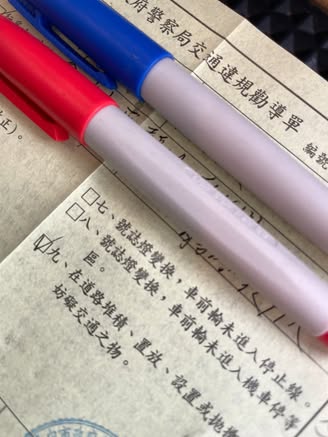 府警察局交通違規勸導單
編號
正)。
□七、號誌燈變換，車前輪未進入停止線。
□八、號誌燈變換，車前輪未進入機車停等
區。
☑九、在道路堆積、置放、設置或拋擲
妨礙交通之物。